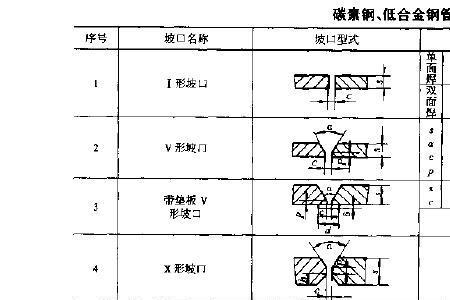 碳素钢、低合金钢管
序号 坡口名称 坡口型式
单面焊
1 I 形坡口 s
c
双面焊
α s
2 V 形坡口 s α
c p c
p
α s
3 带垫板 V 形坡口 c
p c s
d
α
4 X 形坡口 s
p
c